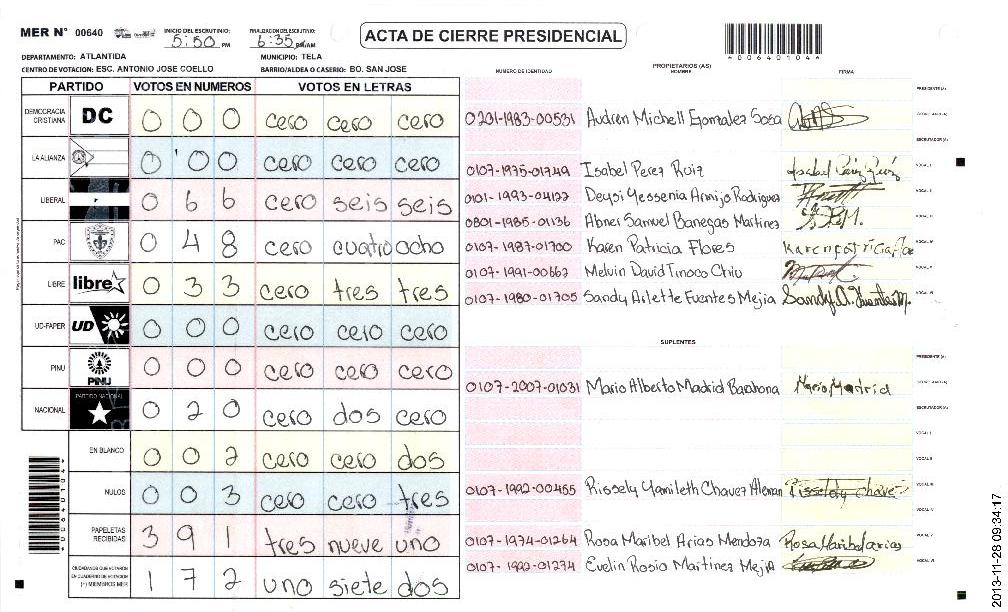 MER N° 00640
INICIO DEL ESCRUTINIO: 5:50 PM
FINALIZACION DEL ESCRUTINIO: 6:35 PM/AM
ACTA DE CIERRE PRESIDENCIAL
*006401044*
DEPARTAMENTO: ATLANTIDA MUNICIPIO: TELA
CENTRO DE VOTACION: ESC. ANTONIO JOSE COELLO BARRIO/ALDEA O CASERIO: BO. SAN JOSE
PARTIDO VOTOS EN NUMEROS VOTOS EN LETRAS
DEMOCRACIA CRISTIANA DC 0 0 0 cero cero cero
LA ALIANZA 0 0 0 cero cero cero
LIBERAL 0 6 6 cero seis seis
PAC 0 4 8 cero cuatro ocho
LIBRE libre 0 3 3 cero tres tres
UD-FAPER UD 0 0 0 cero cero cero
PINU PINU 0 0 0 cero cero cero
NACIONAL PARTIDO NACIONAL 0 2 0 cero dos cero
EN BLANCO 0 0 2 cero cero dos
NULOS 0 0 3 cero cero tres
PAPELETAS RECIBIDAS 3 9 1 tres nueve uno
CIUDADANOS QUE VOTARON EN CUADERNO DE VOTACION (+) MIEMBROS MER 1 7 2 uno siete dos
PROPIETARIOS (AS)
NUMERO DE IDENTIDAD NOMBRE FIRMA
PRESIDENTE (A)
0201-1983-00531 Audren Michell Gonzalez Sosa
ESCRUTADOR (A)
0107-1975-01749 Isabel Perez Ruiz VOCAL I
0101-1993-04122 Deysi Yessenia Armijo Rodriguez VOCAL II
0801-1985-01136 Abner Samuel Banegas Martinez VOCAL III
0107-1987-01700 Karen Patricia Flores VOCAL IV
0107-1991-00662 Melvin David Tinoco Chiu VOCAL V
0107-1980-01705 Sandy Arlette Fuentes Mejia Sandy A. Fuentes M. VOCAL VI
SUPLENTES
PRESIDENTE (A)
0107-2007-01031 Mario Alberto Madrid Barahona Mario Madrid
ESCRUTADOR (A)
VOCAL I
VOCAL II
0107-1992-00455 Rissely Yamileth Chavez Aleman Rissely Chavez VOCAL III
VOCAL IV
0107-1974-01264 Rosa Maribel Arias Mendoza Rosa Maribel arias VOCAL V
0107-1992-01274 Evelin Rosio Martinez Mejia VOCAL VI
2013-11-28 09:34:17